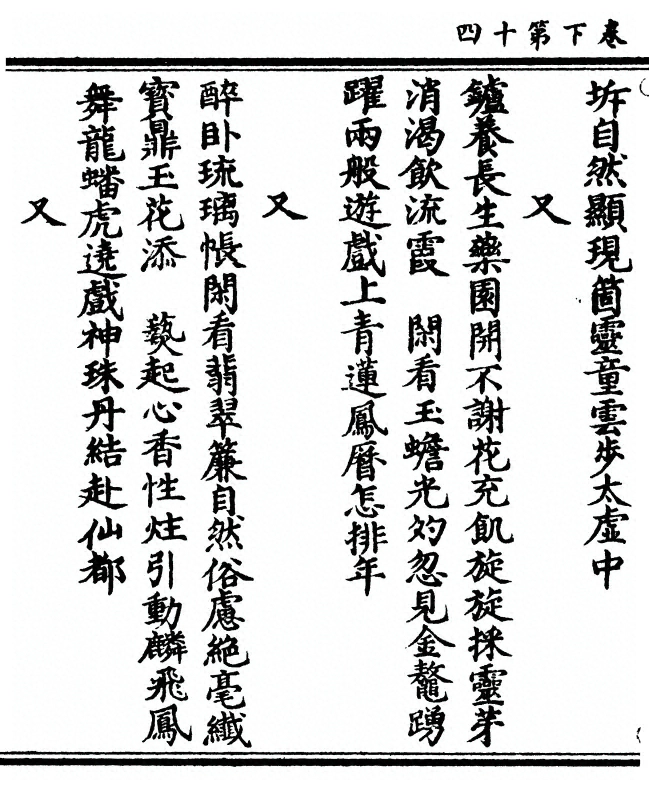 卷下第十四
坼自然顯現箇靈童雲步太虛中
又
鑪養長生藥園開不謝花充飢旋旋採靈芽
消渴飲流霞　閑看玉蟾光灼忽見金鼇踴
躍兩般遊戲上青蓮鳳曆怎排年
又
醉卧琉璃帳閑看翡翠簾自然俗慮絕毫纖
寶鼎玉花添　爇起心香性炷引動麟飛鳳
舞龍蟠虎遶戲神珠丹結赴仙都
又